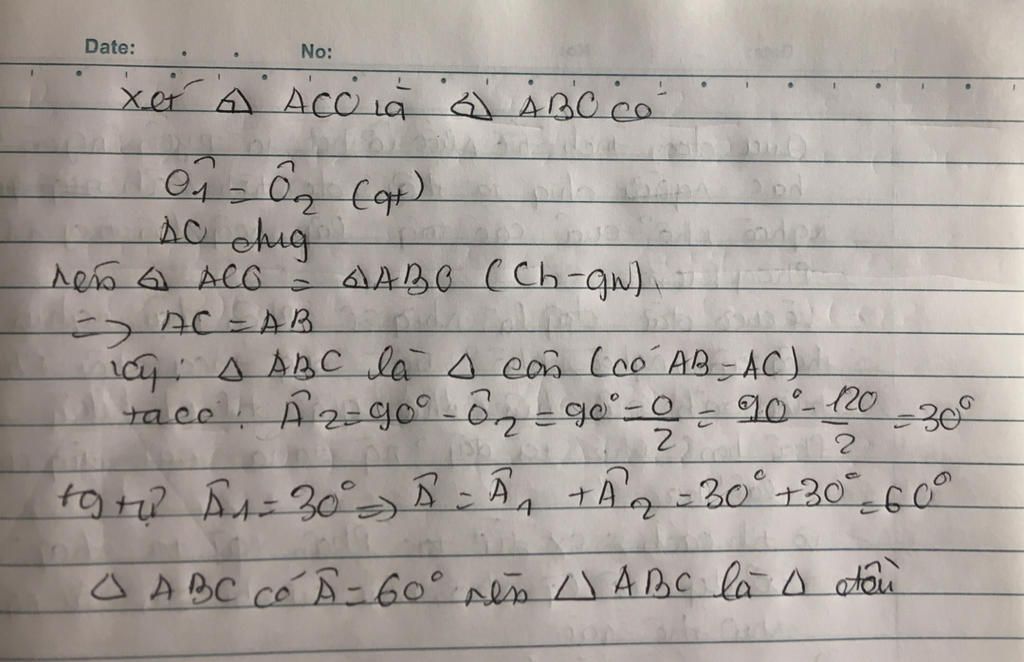 Date: No:
xét ⊿ ACO là ⊿ ABO có
Ô1 = Ô2 (gt)
AO chug
nên ⊿ ACO = ⊿ ABO (Ch-gn)
=> AC = AB
Vậy: △ ABC là △ cân (có AB = AC)
ta có: Â2 = 90° - Ô2 = 90° - O/2 = 90° - 120/2 = 30°
tg tự Â1 = 30° => Â = Â1 + Â2 = 30° + 30° = 60°
△ ABC có Â = 60° nên △ ABC là △ đều